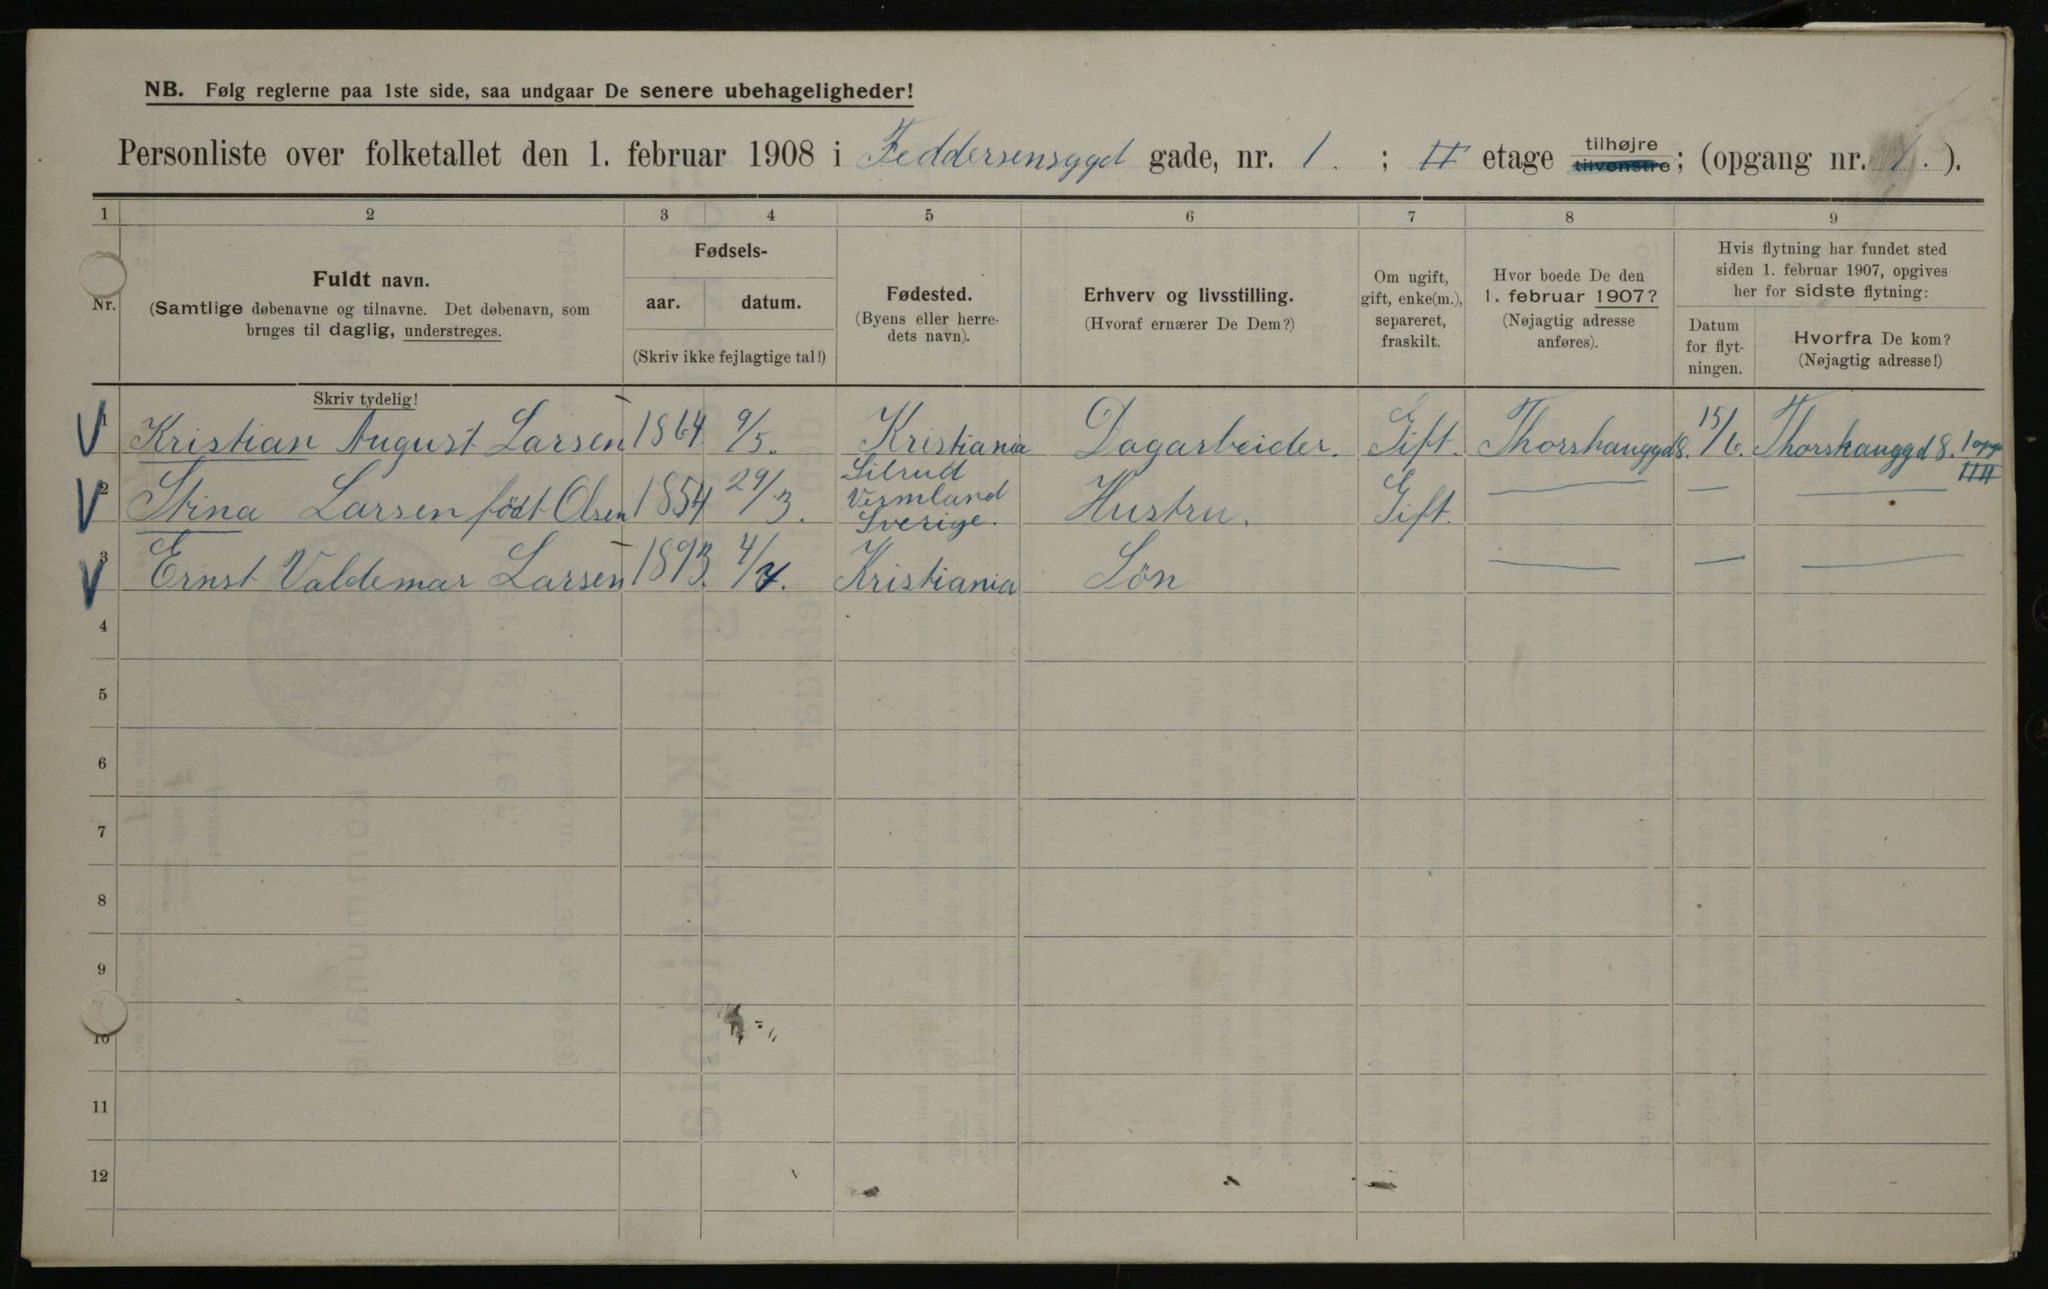 NB. Følg reglerne paa 1ste side, saa undgaar De senere ubehageligheder!
Personliste over folketallet den 1. februar 1908 i Feddersensggd gade, nr. 1. ; II etage tilhøjre tilvenstre; (opgang nr. 1. ).
1 2 3 4 5 6 7 8 9
Nr.
Fuldt navn.
(Samtlige døbenavne og tilnavne. Det døbenavn, som
bruges til daglig, understreges.
Skriv tydelig!
Fødsels-
aar. datum.
(Skriv ikke fejlagtige tal!)
Fødested.
(Byens eller herre-
dets navn).
Erhverv og livsstilling.
(Hvoraf ernærer De Dem?)
Om ugift,
gift, enke(m.),
separeret,
fraskilt.
Hvor boede De den
1. februar 1907?
(Nøjagtig adresse
anføres).
Hvis flytning har fundet sted
siden 1. februar 1907, opgives
her for sidste flytning:
Datum
for flyt-
ningen.
Hvorfra De kom?
(Nøjagtig adresse!)
1 Kristian August Larsen 1864. 9/5. Kristiania Dagarbeider. Gift. Thorshauggd 8. 15/6. Thorshauggd 8. 1 opg III
2 Stina Larsen födt Olsen 1854 29/3. Silrud Vermland Sverige. Hustru. Gift.
3 Ernst Valdemar Larsen 1893. 4/7. Kristiania Sön
4
5
6
7
8
9
10
11
12